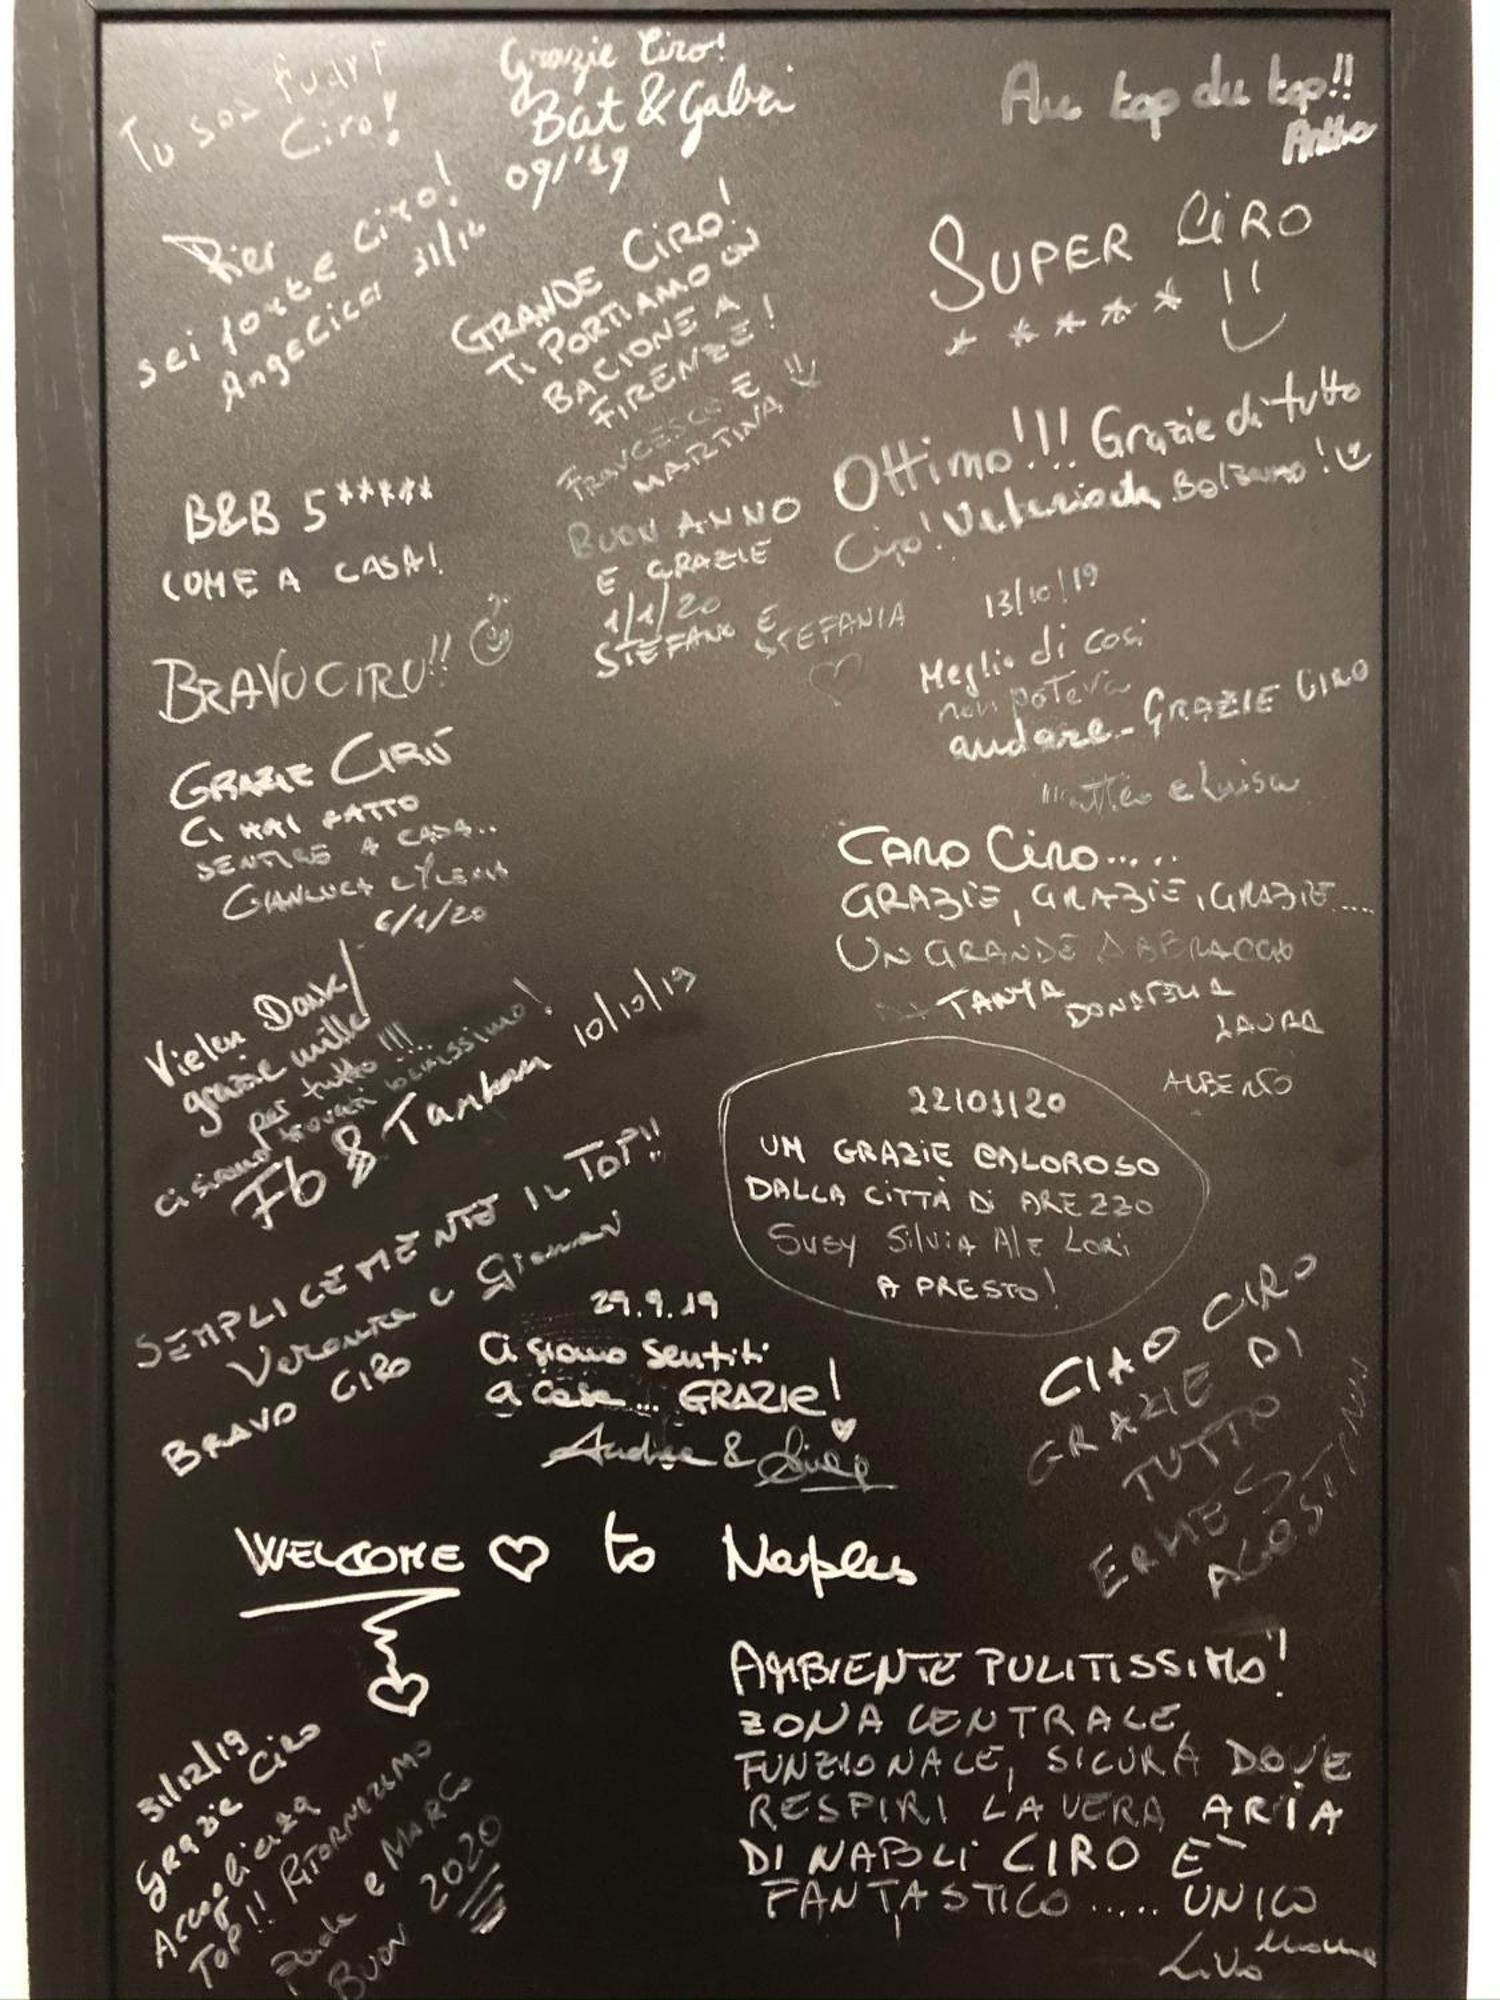 Tu sos fuart
Ciro!
Grazie Ciro!
Bat & Gabri
09/'19
Au top du top!!
Antho
Pier
sei forte Ciro!
Angelica 31/12
GRANDE CIRO!
TI PORTIAMO UN
BACIONE A
FIRENZE!
FRANCESCO E
MARTINA
SUPER CIRO
* * * * * !!
B&B 5*****
COME A CASA!
Ottimo!!!! Grazie di tutto
Ciro! da Bolzano!
BUON ANNO
E GRAZIE
1/1/20
STEFANO E STEFANIA
13/10/19
Meglio di così
non poteva
andare - GRAZIE CIRO
Matteo e Luisa
BRAVO CIRO!!
GRAZIE CIRO
CI HAI FATTO
SENTIRE A CASA..
GIANLUCA E YLENIA
6/1/20
CARO CIRO.....
GRAZIE, GRAZIE, GRAZIE....
UN GRANDE ABBRACCIO
DA TANYA DONATELLA
LAURA
ALBERTO
Vielen Dank!
grazie mille
per tutto !!!
ci siamo trovati benissimo!
& 10/10/19
22/01/20
UN GRAZIE CALOROSO
DALLA CITTÀ DI AREZZO
SUSY SILVIA ALE LORI
A PRESTO!
SEMPLICEMENTE IL TOP!!
Veronica e Giovanni
BRAVO CIRO
29.9.19
Ci siamo sentiti
a casa... GRAZIE!
Andrea &
CIAO CIRO
GRAZIE DI
TUTTO
ERMES
AGOSTINIS
WELCOME to Naples
31/12/19
Grazie Ciro
Accoglienza
TOP!! RITORNEREMO
Paola e MARCO
BUON 2020
AMBIENTE PULITISSIMO!
ZONA CENTRALE,
FUNZIONALE, SICURA DOVE
RESPIRI LA VERA ARIA
DI NAPOLI CIRO È
FANTASTICO..... UNICO